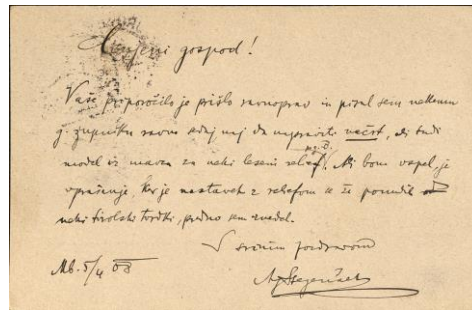 Cenjeni gospod!
Vaše priporočilo je prišlo ravnoprav in pisal sem nekemu
g. župniku ravno sedaj naj da napraviti načrt, ali tudi
model iz mavca za neki leseni relief. Ali bom uspel, je
vprašanje, ker je nastavek z reliefom že ponudil
neki tirolski tvrdki, predno sem zvedel.
S srčnim pozdravom
Mb. 5/4 08
Avg Stegenšek